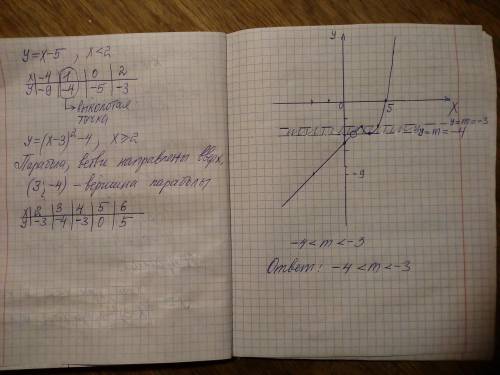 y=x-5, x<2
x -4 1 0 2
y -9 -4 -5 -3
выколотая
точка
y=(x-3)²-4, x≥2
Парабола, ветви направлены вверх,
(3; -4) - вершина параболы
x 2 3 4 5 6
y -3 -4 -3 0 5
y
0 5 x
y=m=-3
y=m=-4
-9
-4<m<-3
Ответ: -4<m<-3